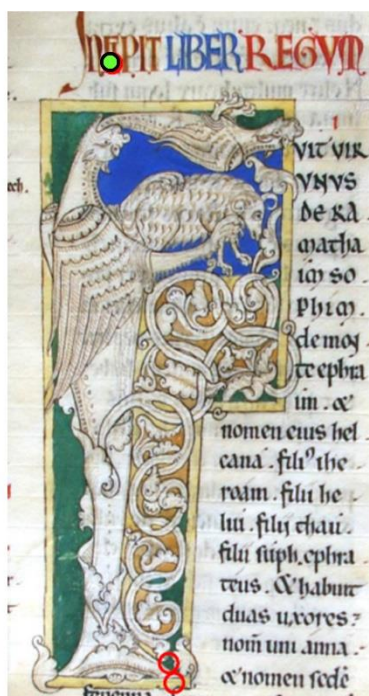 INCIPIT LIBER REGUM
VIT VIR
VNVS
DE RA
matha
im so
phim
de moN
te ephra
im. &
nomen eius hel
cana. filiꝰ ihe
roam. filii he
liu. filii thau.
filii suph. ephra
teus. & habuit
duas uxores:
nom̄ uni anna.
& nomen scdē
fenenna